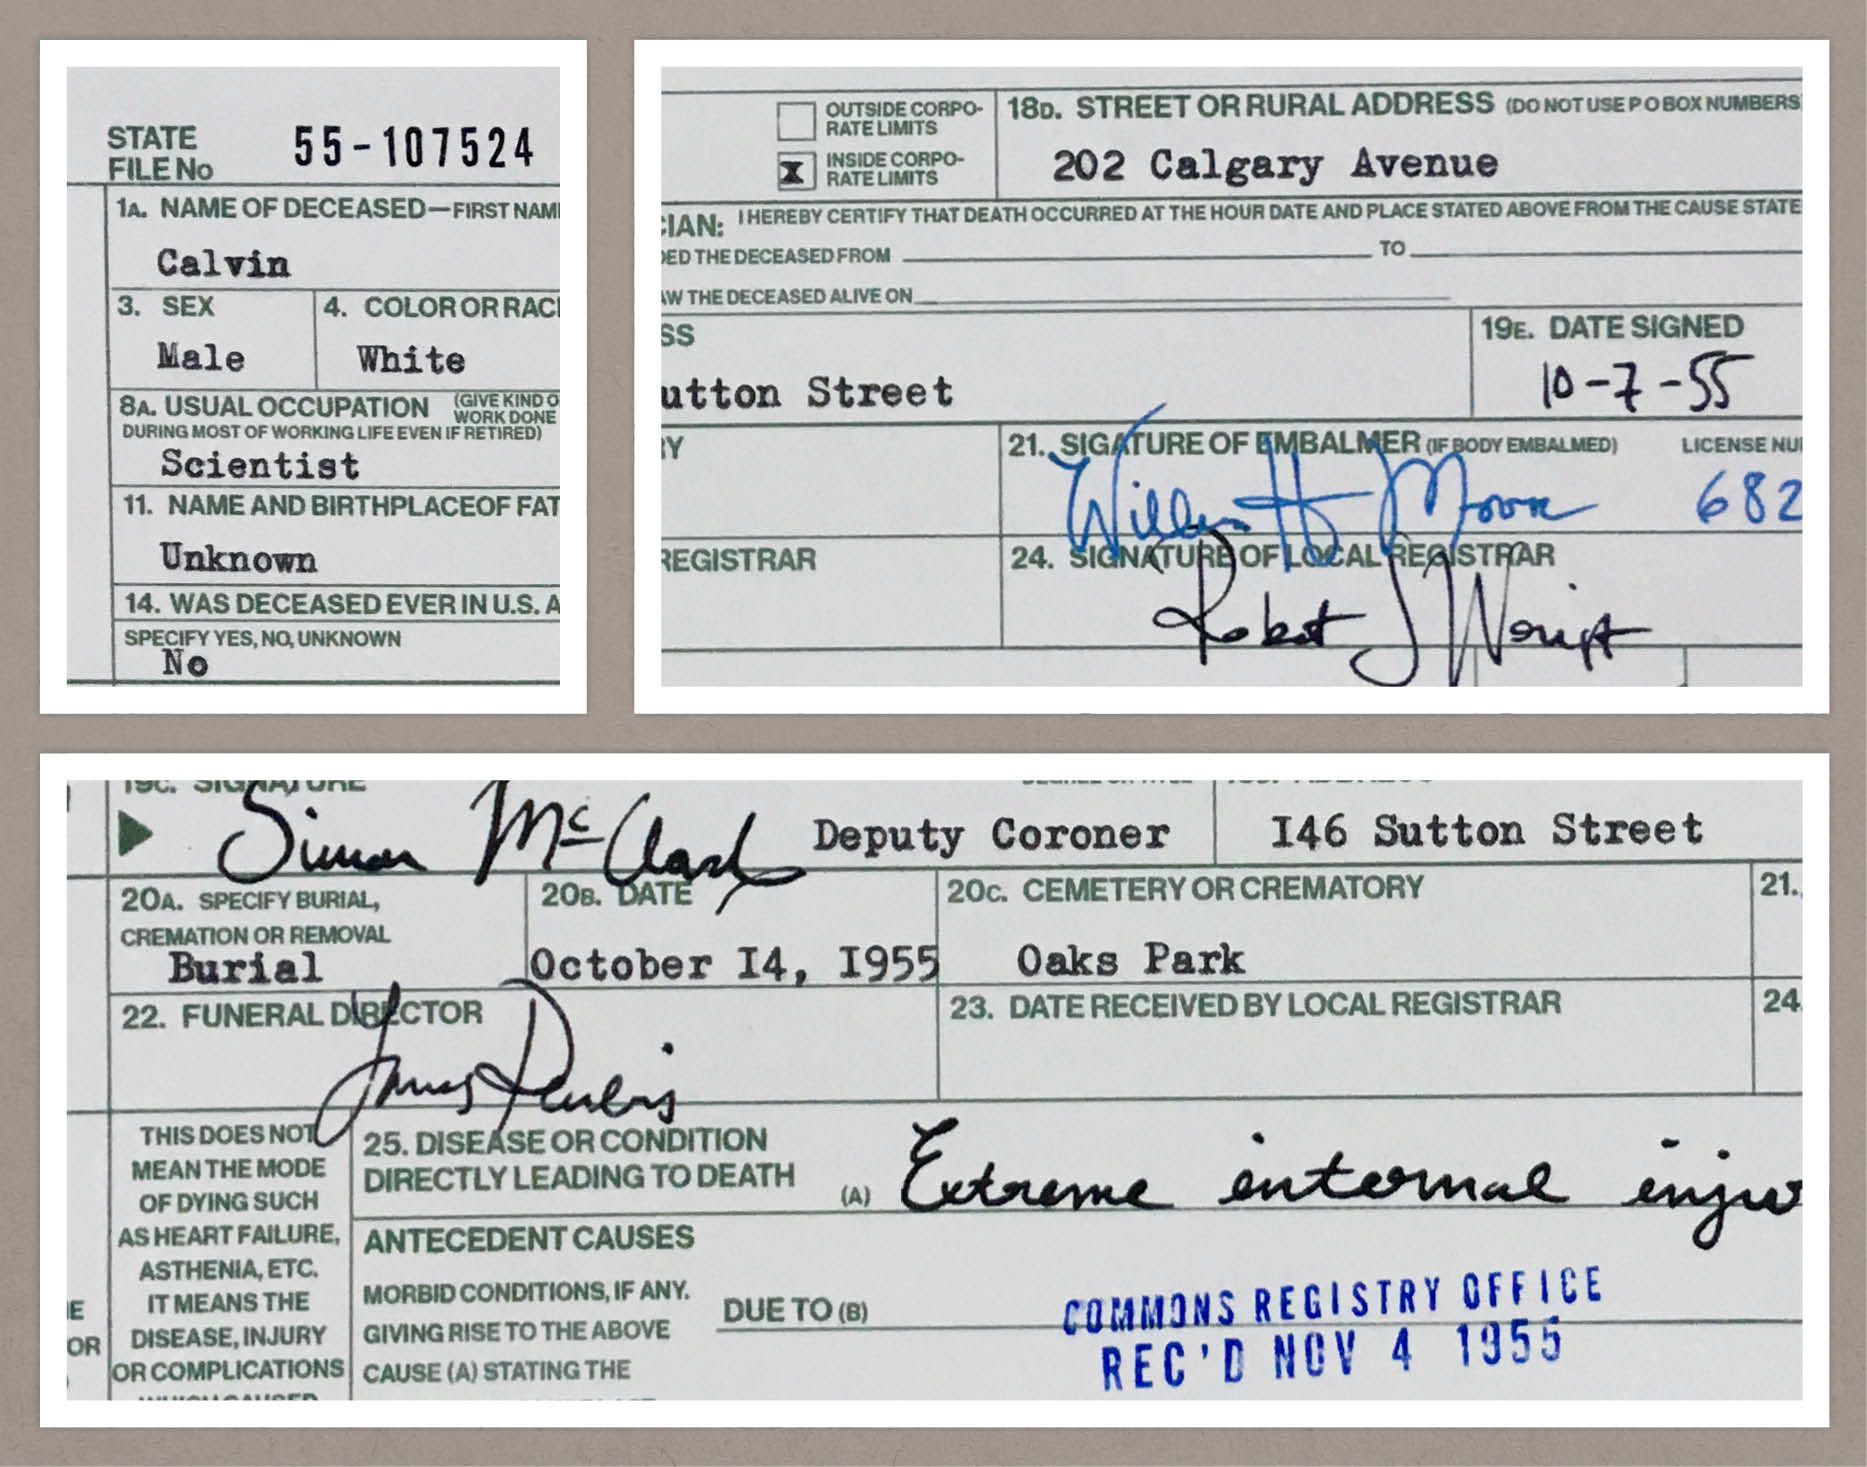 STATE
FILE No 55-107524
1A. NAME OF DECEASED—FIRST NAM
Calvin
3. SEX 4. COLOR OR RAC
Male White
8A. USUAL OCCUPATION (GIVE KIND O
WORK DONE
DURING MOST OF WORKING LIFE EVEN IF RETIRED)
Scientist
11. NAME AND BIRTHPLACEOF FAT
Unknown
14. WAS DECEASED EVER IN U.S. A
SPECIFY YES, NO, UNKNOWN
No
OUTSIDE CORPO-
RATE LIMITS
X INSIDE CORPO-
RATE LIMITS
18D. STREET OR RURAL ADDRESS (DO NOT USE P O BOX NUMBERS
202 Calgary Avenue
IAN: I HEREBY CERTIFY THAT DEATH OCCURRED AT THE HOUR DATE AND PLACE STATED ABOVE FROM THE CAUSE STATE
DED THE DECEASED FROM TO
AW THE DECEASED ALIVE ON
SS 19E. DATE SIGNED
utton Street 10-7-55
RY 21. SIGATURE OF EMBALMER (IF BODY EMBALMED) LICENSE NU
William H Moore 682
REGISTRAR 24. SIGNATURE OF LOCAL REGISTRAR
Robert J
19C. SIGNATURE
Simon McClark Deputy Coroner I46 Sutton Street
20A. SPECIFY BURIAL,
CREMATION OR REMOVAL
Burial
20B. DATE
October I4, I955
20C. CEMETERY OR CREMATORY
Oaks Park
21.
22. FUNERAL DIRECTOR
James
23. DATE RECEIVED BY LOCAL REGISTRAR
24
THIS DOES NOT
MEAN THE MODE
OF DYING SUCH
AS HEART FAILURE,
ASTHENIA, ETC.
IT MEANS THE
DISEASE, INJURY
OR COMPLICATIONS
E
OR
25. DISEASE OR CONDITION
DIRECTLY LEADING TO DEATH (A) Extreme internal inju
ANTECEDENT CAUSES
MORBID CONDITIONS, IF ANY.
GIVING RISE TO THE ABOVE
CAUSE (A) STATING THE
DUE TO (B)
COMMONS REGISTRY OFFICE
REC'D NOV 4 1955